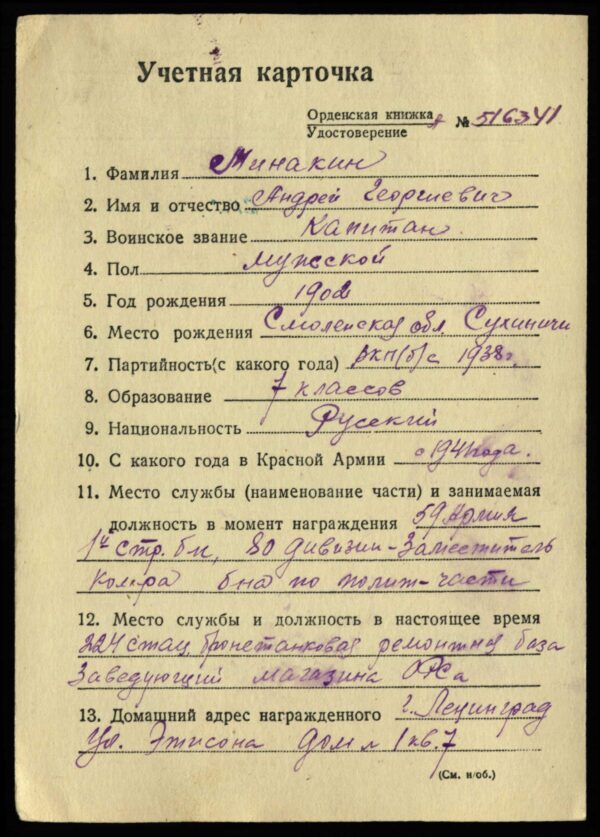 Учетная карточка
Орденская книжка № 516341
Удостоверение
1. Фамилия Минакин
2. Имя и отчество Андрей Георгиевич
3. Воинское звание Капитан
4. Пол мужской
5. Год рождения 1902
6. Место рождения Смоленская обл Сухиничи
7. Партийность(с какого года) вкп(б) с 1938г.
8. Образование 7 классов
9. Национальность Русский
10. С какого года в Красной Армии с 1941 года.
11. Место службы (наименование части) и занимаемая
должность в момент награждения 59 Армия
1й стр. бн, 80 дивизии-Заместитель
Ком-ра б-на по полит-части
12. Место службы и должность в настоящее время
224 стац бронетанковая ремонтная база
Заведующий магазина ОРСа
13. Домашний адрес награжденного г. Ленинград
Ул. дом 1 кв. 7
(См. н/об.)